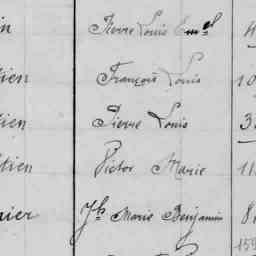 in Pierre Louis Emel 4
tien François Louis 10
tien Pierre Louis 3
tien Victor Marie 11
nier Jh Marie Benjamin 8
159